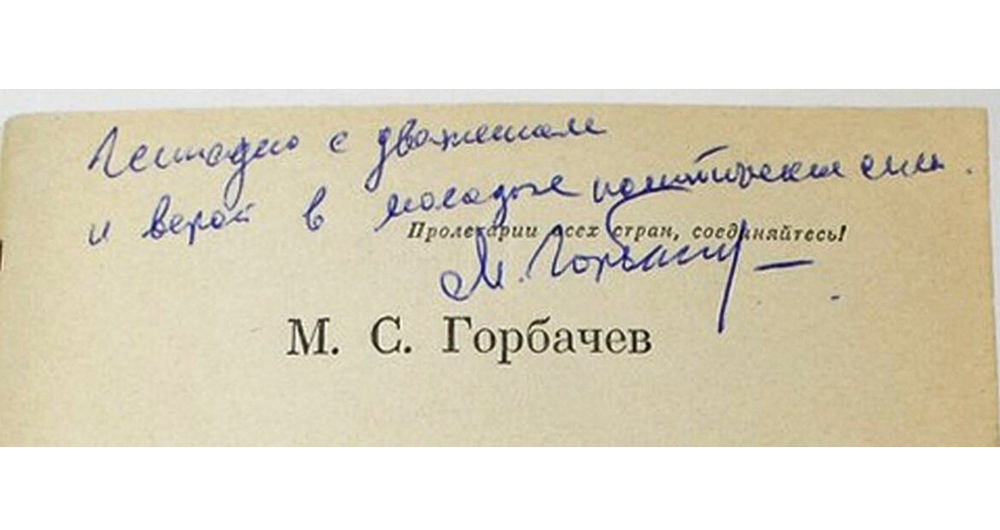 Геннадию с уважением
и верой в молодые политические силы.
Пролетарии всех стран, соединяйтесь!
М. Горбачев
М. С. Горбачев